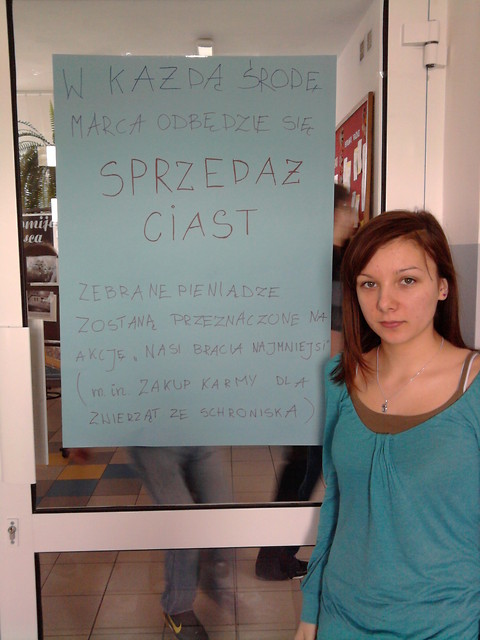 W KAŻDĄ ŚRODĘ
MARCA ODBĘDZIE SIĘ
SPRZEDAŻ
CIAST
ZEBRANE PIENIĄDZE
ZOSTANĄ PRZEZNACZONE NA
AKCJĘ „NASI BRACIA NAJMNIEJSI"
(m.in. ZAKUP KARMY DLA
ZWIERZĄT ZE SCHRONISKA)